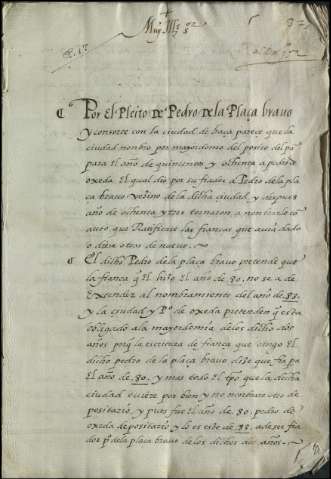 Muy Illes sor
Por El Pleito De Pedro De la Plaça bravo
y consorte con la ciudad de baça parece que la
ciudad nonbro por mayordomo del posito del pan
para El año de quinientos y ochenta a pedro de
oxeda El qual dio por su fiador a Pedro de la pla
ça bravo vezino de la dicha ciudad, y despues
año de ochenta y tres tornaron a nonbralle co
que Ratificase las fianças que avia dado
o diera otras de nuevo.
El dicho Pedro de la plaça bravo pretende que
la fiança q El hizo El año de 80. no se a de
Extender al nombramiento del año de 83.
y la ciudad y Po de oxeda pretenden q esta
obligado a la mayordomia de los dichos dos
años porq la escritura de fiança que otorgo El
dicho pedro de la plaça bravo dize que fia pa
El año de 80. y mas todo El tpo que la dicha
ciudad oviere por bien y no nonbrare otro de
positario, y pues fue El año de 80. pedro de
oxeda depositario y lo es este de 83. a de ser fia
dor po de la plaça bravo de los dichos años.